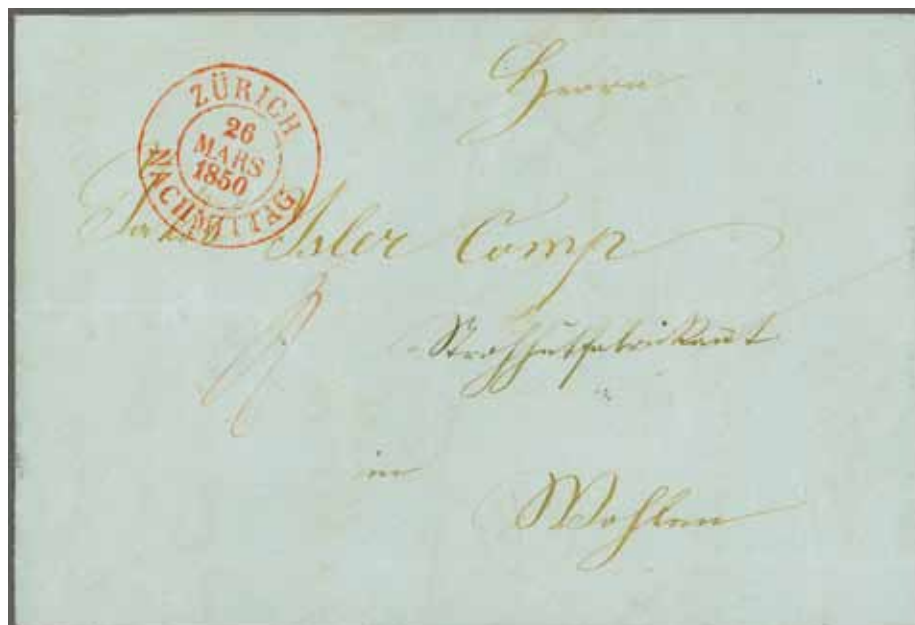 Herrn
ZÜRICH
26
MARS
1850
NACHMITTAG
Jacob Isler Comp
Strohhutfabrikant
in
Wohlen